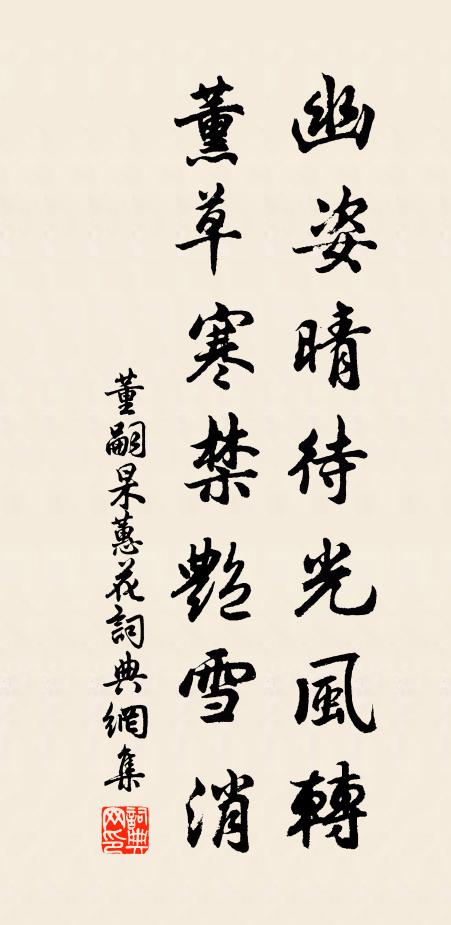 幽姿晴待光風轉
薰草寒禁艷雪消
董嗣杲蕙花詞典網集
詞典網印